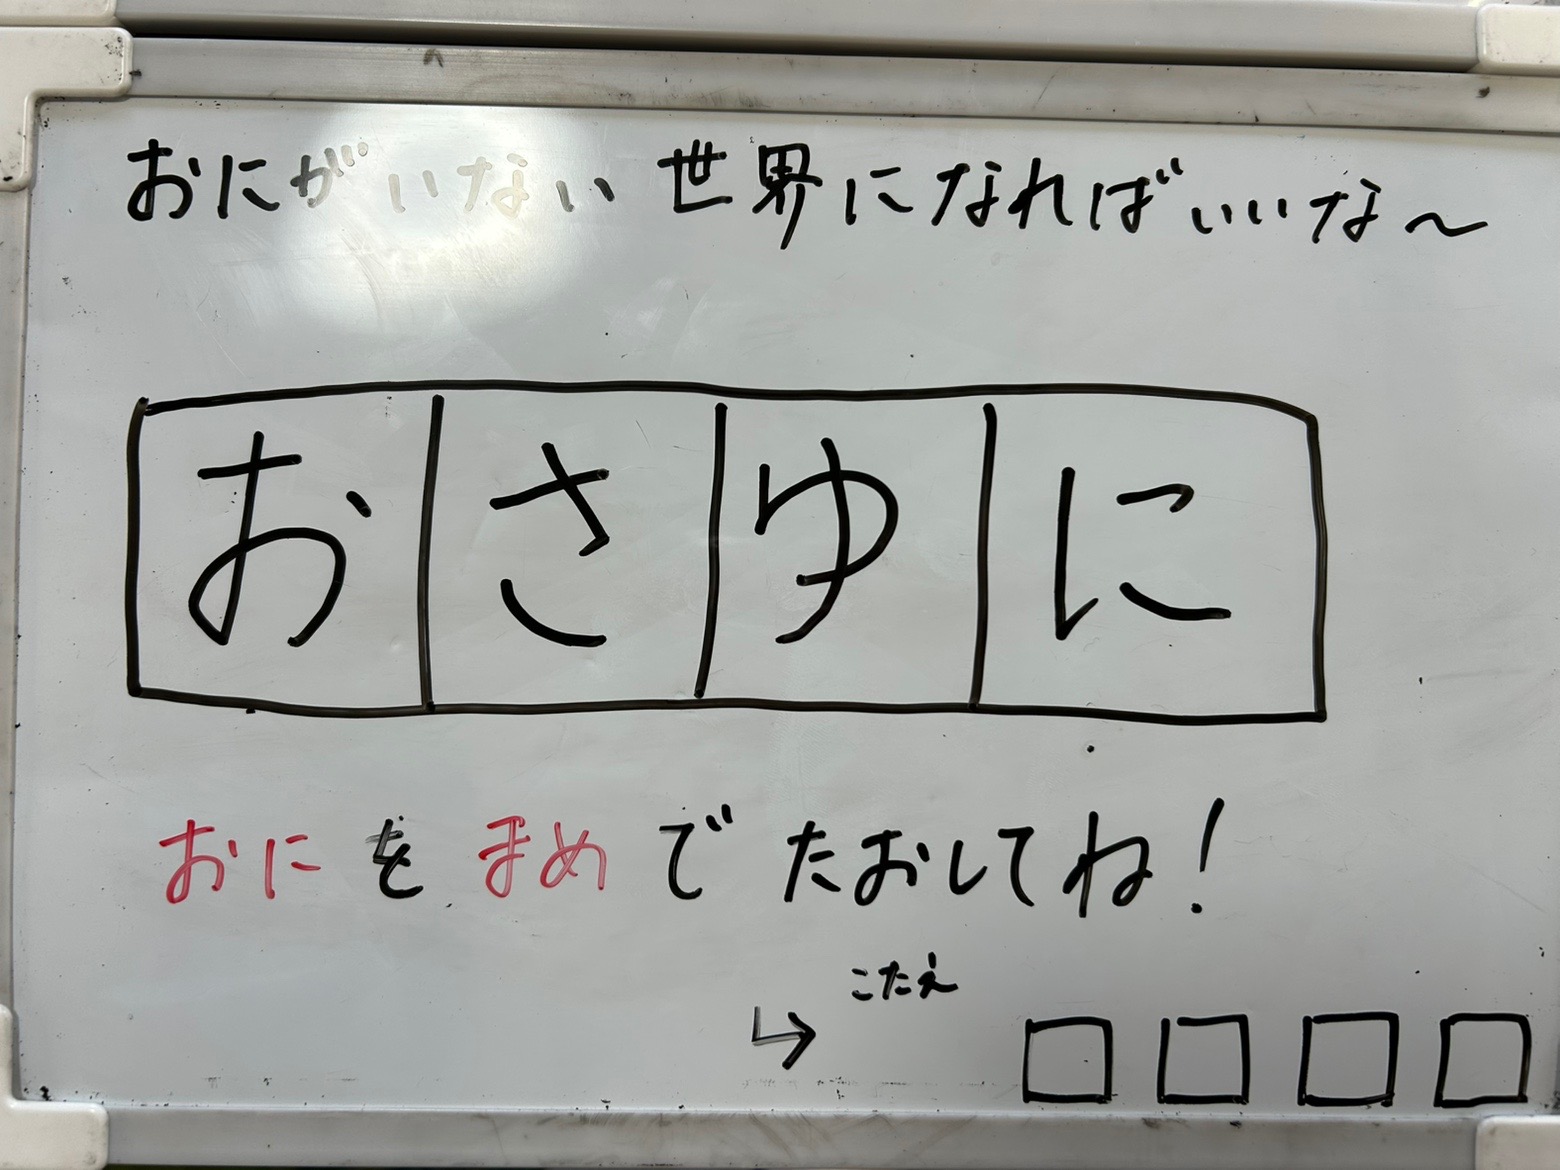 おにがいない世界になればいいな〜
おさゆに
おにをまめでたおしてね!
こたえ
→ □□□□